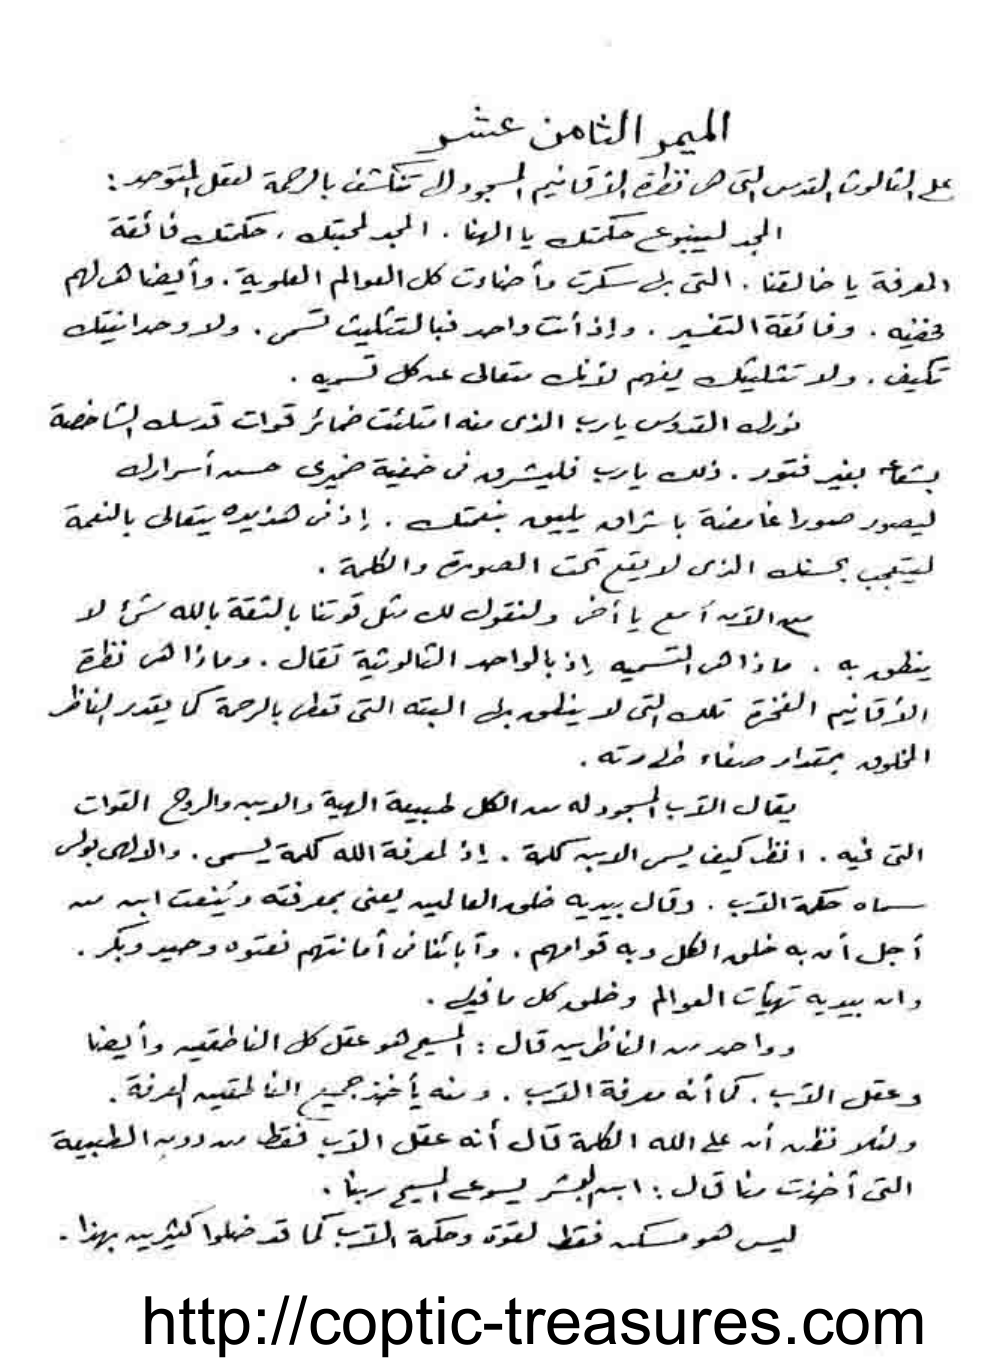 الميمر الثامن عشر
على الثالوث القدس التى هى نظرة الأقانيم المسجود لها تتكاشف بالرحمة لعقل المتوحد :
المجد لينبوع حكمتك يا الهنا . المجد لمحبتك . حكمتك فائقة
المعرفة يا خالقنا . التى بها سكرت وأضاءت كل العوالم العلوية . وأيضا هى لهم
مخفيه . وفائقة التفسير . وإذ أنت واحد فبالتثليث تسمى . ولا وحدانيتك
تكيف . ولا تثليثك يفهم لأنك متعالى عن كل تسميه .
نورك القدوس يارب الذى منه امتلئت ضمائر قوات قدسك الشاخصة
بشعاعه بغير فتور . ذلك يارب فليشرق فى خفية ضميرى حسن أسرارك
ليصور صورا غامضة باشراق يليق بنعمتك . إذ فى هذيذه يتعالى بالنعمة
ليتعجب بحسنك الذى لا يقع تحت الصورة والكلمة .
من الآن أسمع يا أخى ولنقول لك مثل قوتنا بالثقة بالله شئ لا
ينطق به . ماذا هى التسميه إذ بالواحد الثالوثية تقال . وماذا هى نظرة
الأقانيم الفخرة تلك التى لا ينطق بها البته التى تعطى بالرحمة كما يقدر الناظر
المخلوق بمقدار صفاء طهارته .
يقال الآب المسجود له من الكل طبيعة الهية والابن والروح القوات
التى فيه . انظر كيف يسمى الابن كلمة . إذ لمعرفة الله كلمة يسمى . والالهى بولس
سماه حكمة الآب . وقال بيديه خلق العالمين يعنى بمعرفته ويُنعت ابن من
أجل أن به خلق الكل وبه قوامهم . وآبائنا فى أمانتهم نعتوه وحيد وبكر .
وان بيديه تهيأت العوالم وخلق كل ما فيها .
وواحد من الناظرين قال : المسيح هو عقل كل الناطقين وأيضا
وعقل الآب . كما أنه معرفة الآب . ومنه يأخذ جميع الناطقين المعرفة .
ولئلا نظن أن على الله الكلمة قال أنه عقل الآب فقط من دون الطبيعة
التى أخذت منا قال : ابن البشر يسوع المسيح ربنا .
ليس هو مسكن فقط لقوة وحكمة الآب كما قد ضلوا كثيرين بهذا .
http://coptic-treasures.com